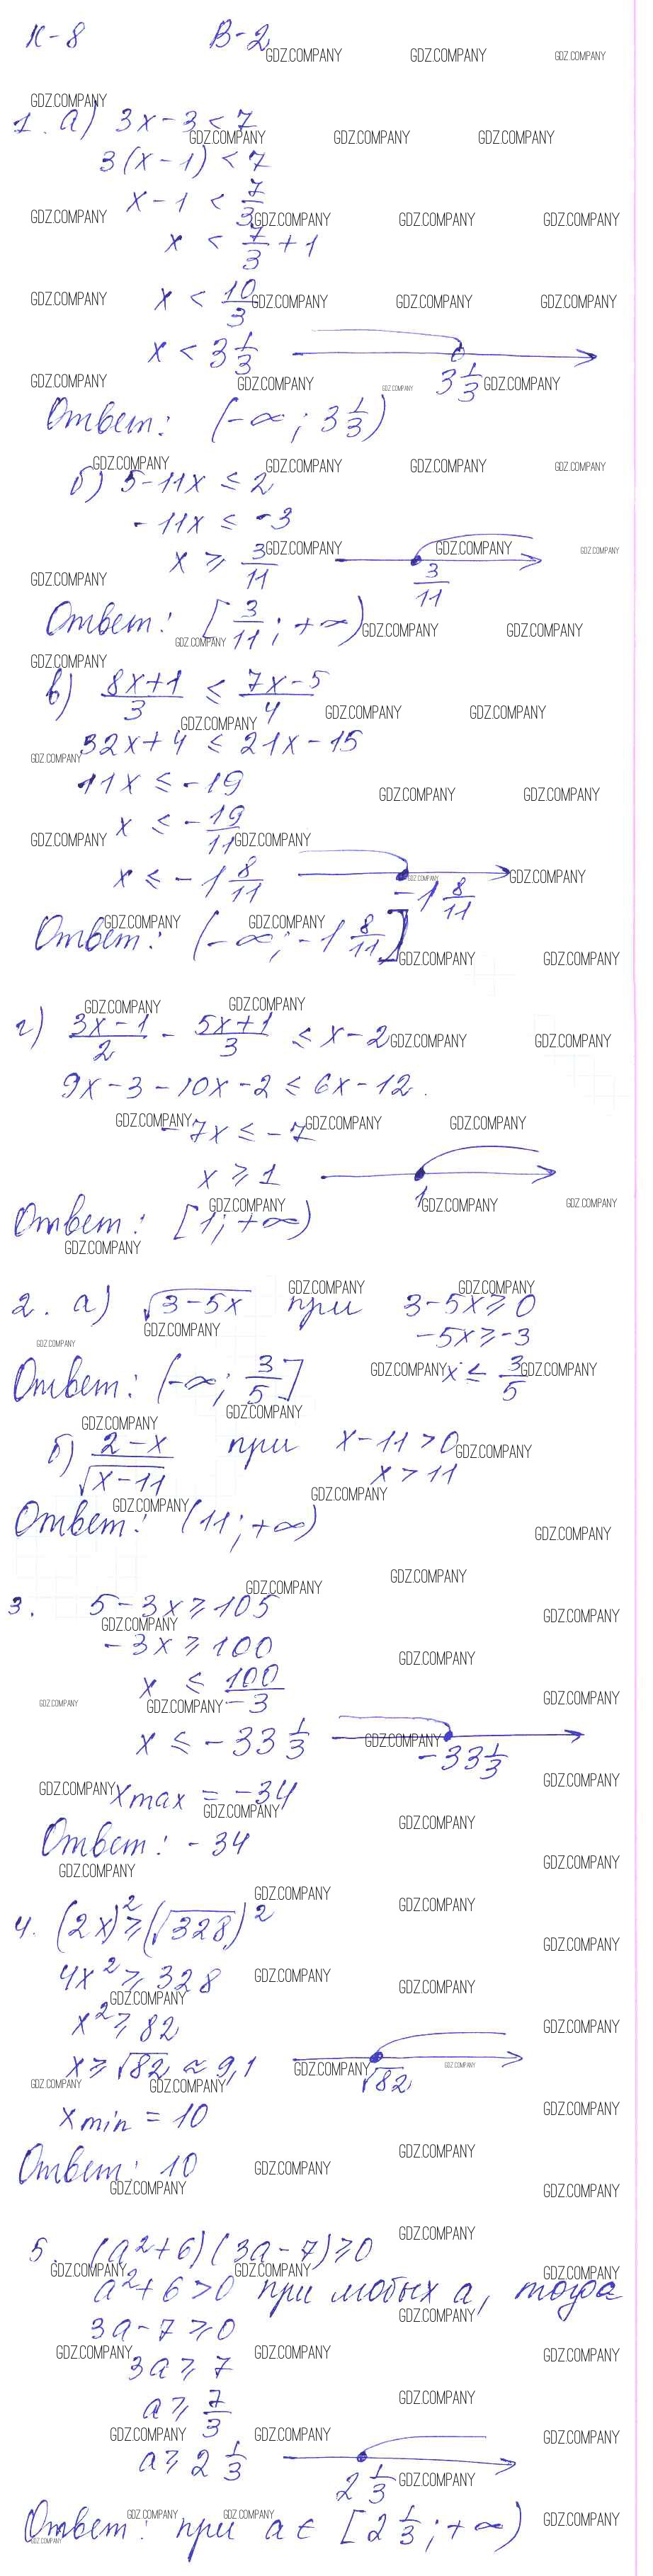 К-8 В-2
1. а) 3x - 3 < 7
3(x - 1) < 7
x - 1 < 7/3
x < 7/3 + 1
x < 10/3
x < 3 1/3
3 1/3
Ответ: (-∞; 3 1/3)
б) 5 - 11x ≤ 2
-11x ≤ -3
x ≥ 3/11
3/11
Ответ: [3/11; +∞)
в) (8x+1)/3 ≤ (7x-5)/4
32x + 4 ≤ 21x - 15
11x ≤ -19
x ≤ -19/11
x ≤ -1 8/11
-1 8/11
Ответ: (-∞; -1 8/11]
г) (3x-1)/2 - (5x+1)/3 ≤ x - 2
9x - 3 - 10x - 2 ≤ 6x - 12.
-7x ≤ -7
x ≥ 1
1
Ответ: [1; +∞)
2. а) √(3-5x) при 3-5x ≥ 0
-5x ≥ -3
x ≤ 3/5
Ответ: (-∞; 3/5]
б) (2-x)/√(x-11) при x - 11 > 0
x > 11
Ответ: (11; +∞)
3. 5 - 3x ≥ 105
-3x ≥ 100
x ≤ 100/-3
x ≤ -33 1/3
-33 1/3
x max = -34
Ответ: -34
4. (2x)² ≥ (√328)²
4x² ≥ 328
x² ≥ 82
x ≥ √82 ≈ 9,1
√82
x min = 10
Ответ: 10
5. (a²+6)(3a-7) ≥ 0
a²+6 > 0 при любых a, тогда
3a - 7 ≥ 0
3a ≥ 7
a ≥ 7/3
a ≥ 2 1/3
2 1/3
Ответ: при a ∈ [2 1/3; +∞)
GDZ.COMPANY